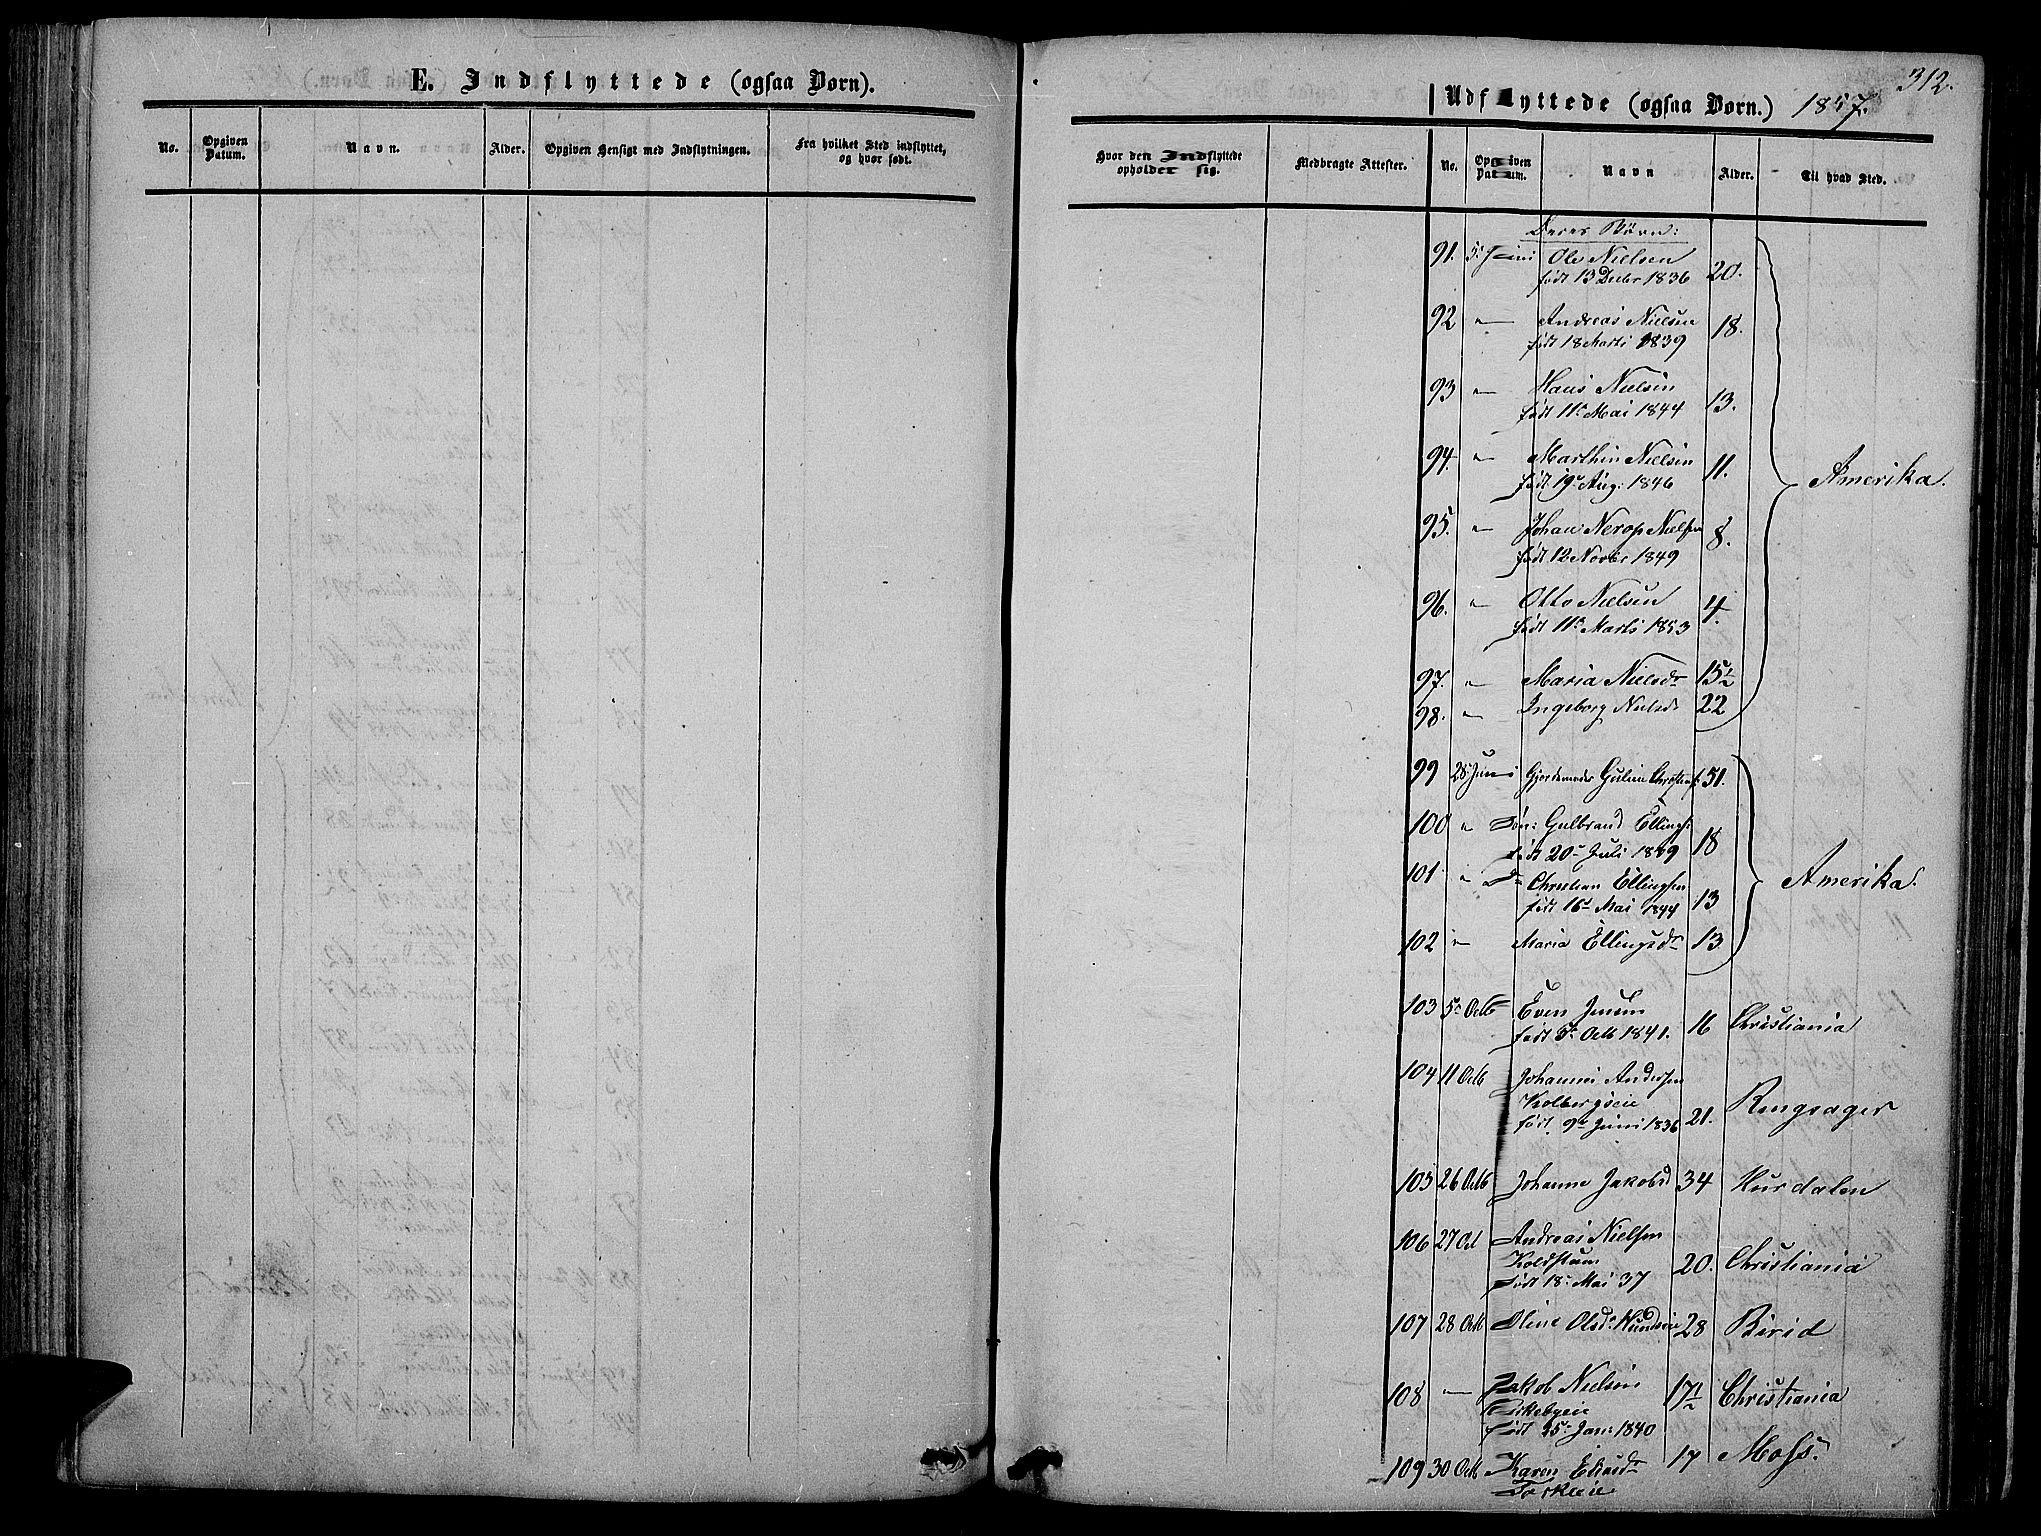 E. Indflyttede (ogsaa Børn).
No.
Opgiven Datum.
Navn.
Alder.
Opgiven Hensigt med Indflytningen.
Fra hvilket Sted indflyttet, og hvor født.
312.
Udflyttede (ogsaa Børn.) 1857.
Hvor den Indflyttede opholder sig.
Medbragte Attester.
No.
Opgiven Datum.
Navn
Alder.
Til hvad Sted.
Deres Børn:
91. 5t Juni Ole Nielsen 20.
født 13 Decbr 1836
92 " Andreas Nielsen 18.
født 18 Marts 1839
93 " Hans Nielsen 13.
født 11te Mai 1844
94. " Marthin Nielsen 11.
født 19de Aug: 1846
Amerika.
95. " Johan Nerop Nielsen 8.
født 12 Novbr 1849
96. " Otto Nielsen 4.
født 11te Marts 1853
97. " Maria Nielsdr 15 1/2
98. " Ingeborg Nielsdr 22
99 28 Juni Gjordemoder Guline Christens: 51.
100 " Søn: Gulbrand Ellings: 18
født 20de Juli 1839
101 " Do Christian Ellingsen 13
født 16de Mai 1844
Amerika.
102 " Maria Ellingsdr 13
103 5te Octb Even Jensen 16 Christiania
født 5te Octb 1841.
104 11 Octb Johannes Andersen
Kolbergseie 21. Ringsager
født 9de Juni 1836
105 26 Octb Johanne Jakobsd 34 Hurdalen
106 27 Oct Andreas Nielsen
Koldstum 20. Christiania
født 18de Mai 37
107 28 Octb Oline Olsdr Hundseie 28 Birid
108 " Jakob Nielsen 17 1/2 Christiania
Kirkebyeie
født 25de Jan: 1840
109 30 Octb Karen Eliasdr 17 Moss.